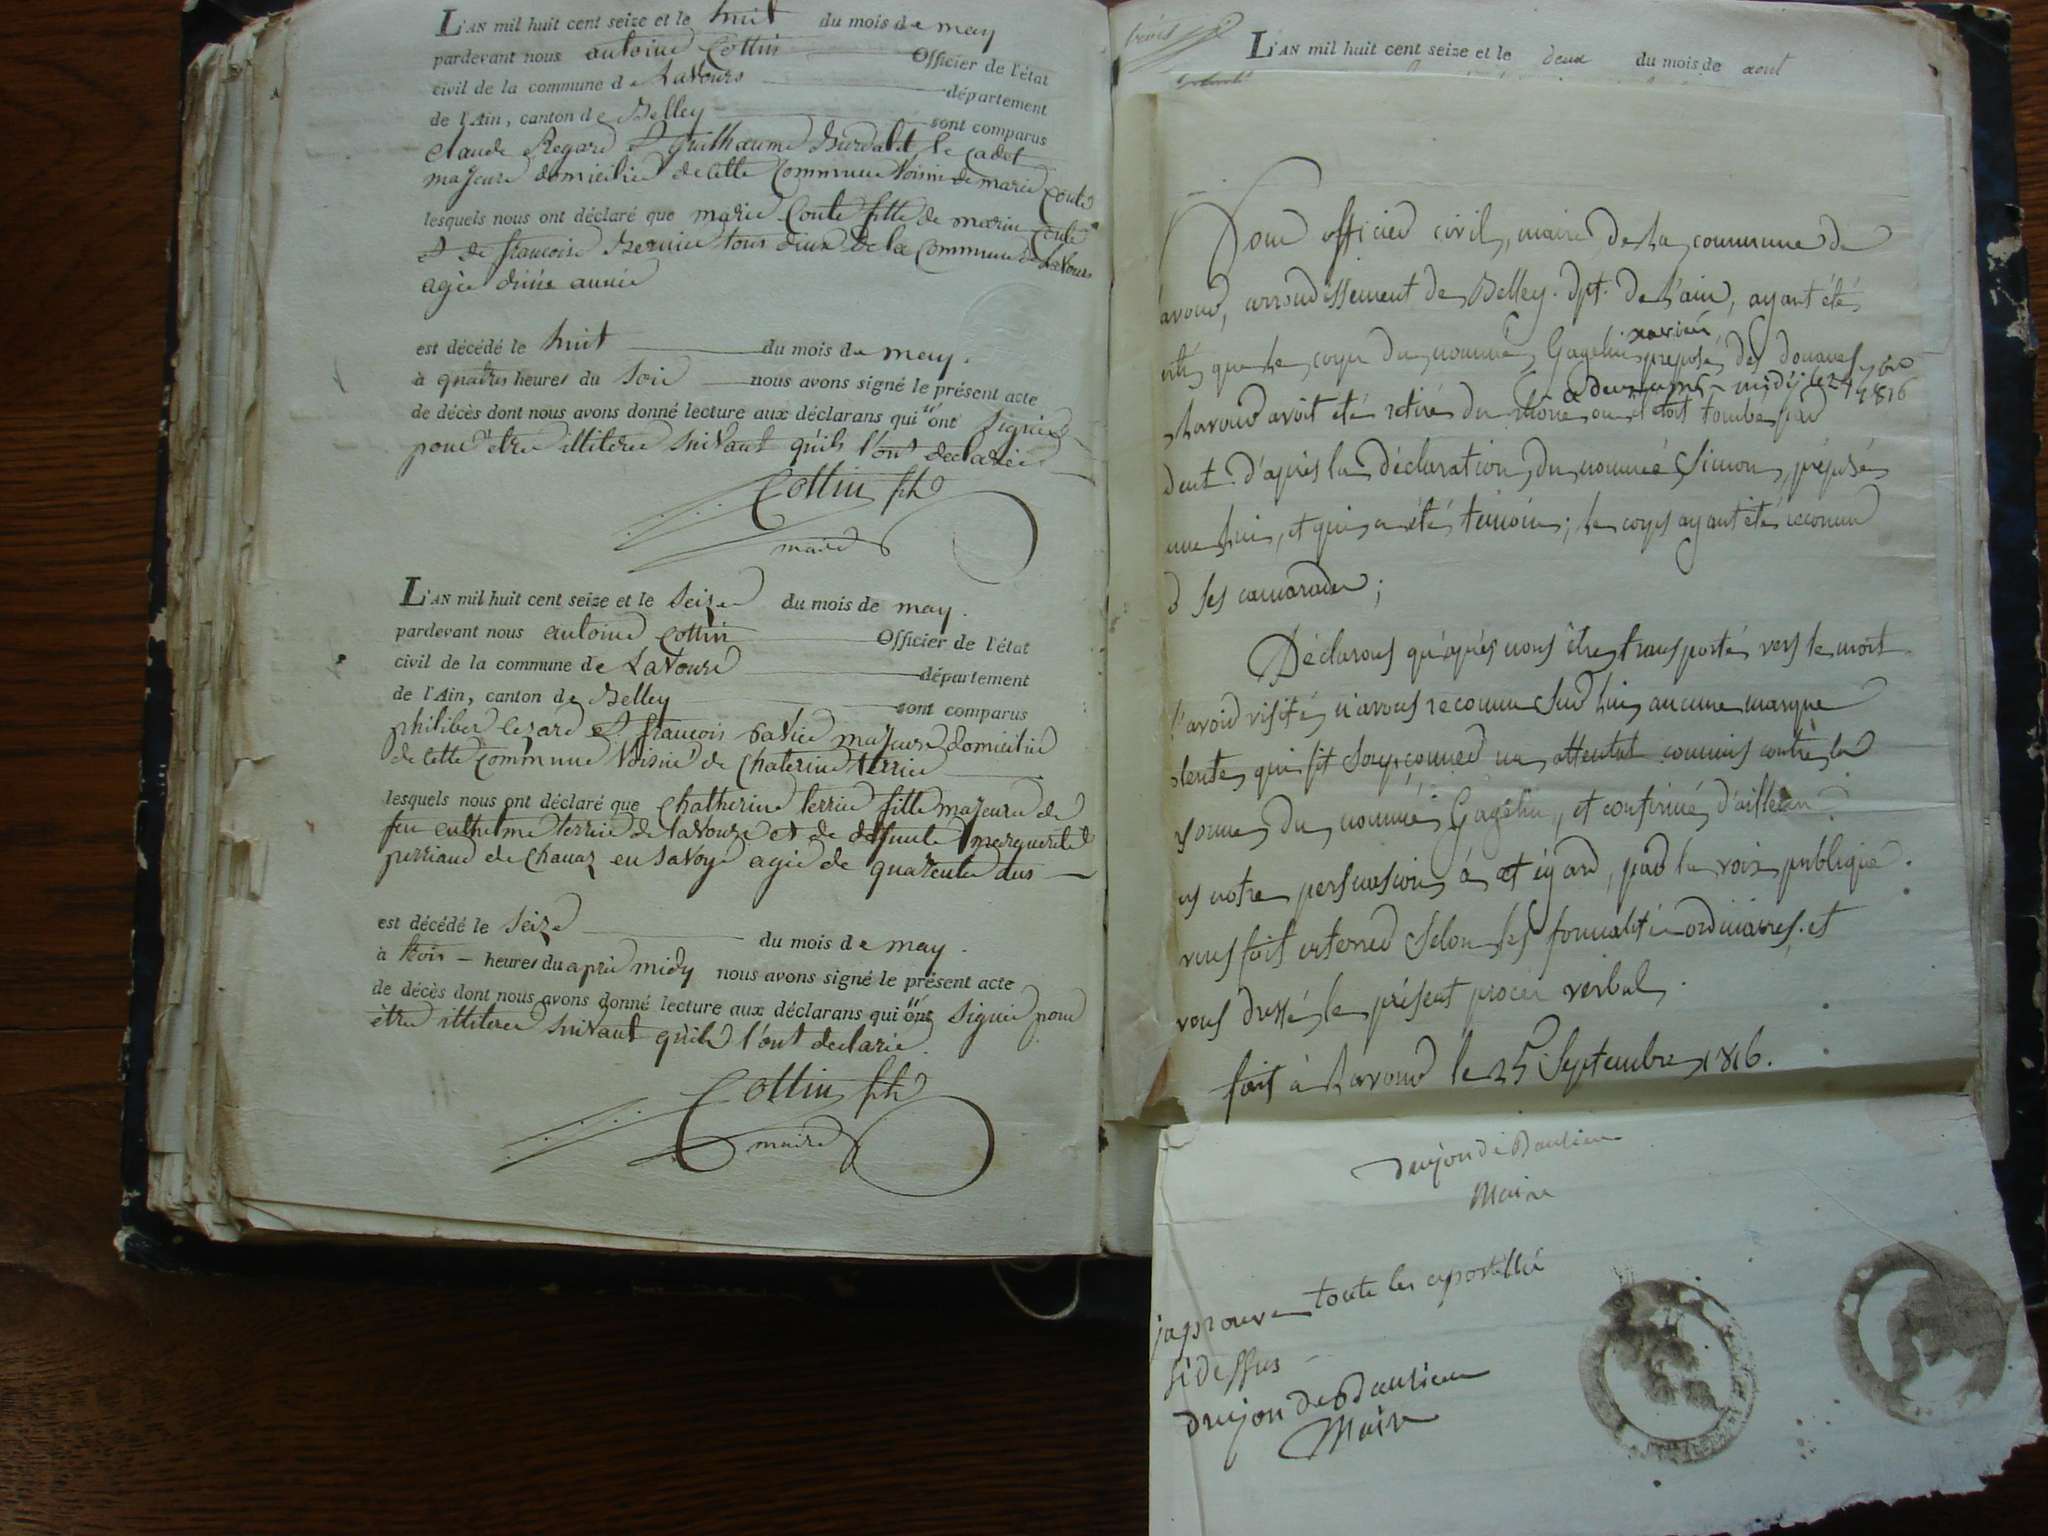 L'AN mil huit cent seize et le huit du mois de may
pardevant nous antoine Cottin Officier de l'état
civil de la commune de Lavours département
de l'Ain, canton de Belley sont comparus
claude Regard et Guilhaume Burdalet le cadet
majeure domicilié de cette Commune Voisin de marie Coute
lesquels nous ont déclaré que marie Coute fille de marin Coute
et de francoise Bernice tous deux de la Commune de Lavours
agée d'une année
est décédé le huit du mois de may.
à quatres heures du Soir nous avons signé le présent acte
de décès dont nous avons donné lecture aux déclarans qui n'ont signié
pour être illiteré suivant qu'ils l'ont declarée
Cottin
maire
L'AN mil huit cent seize et le seize du mois de may.
pardevant nous antoine Cottin Officier de l'état
civil de la commune de Lavours département
de l'Ain, canton de Belley sont comparus
philiber et francois majeure domicilié
de cette commune Voisine de Chaterine terrier
lesquels nous ont déclaré que Chatherine terrier fille majeure de
feu enthelme terrier de Lavours et de defunte merguerite
perriand de Chanaz en Savoye agée de quarente ans
est décédé le seize du mois de may.
à trois heures du aprié midy nous avons signé le présent acte
de décès dont nous avons donné lecture aux déclarans qui n'ont signié pour
être illiteré suivant quils l'ont declarée.
Cottin
maire
L'AN mil huit cent seize et le deux du mois de aout
officier civil, maire de La commune de
avour, arrondissement de Belley. dpt. de l'ain, ayant été
que le corps du nommé Gagelin xavier préposé des douanes
a Lavour avoit été retiré du Rhône ou il étoit tombé par
a deux heures midy le 24 7bre 1816
dent d'après la déclaration du nommé Simon, préposé
me lui, et qui a été témoin; le corps ayant été reconnu
ses camarades;
Déclarons qu'après nous être transporté vers le mort
l'avoir visité n'avons reconnu sur lui aucune marque
lente qui fit soupçonner un attentat commis contre la
sonne du nommé Gagelin, et confirmé d'ailleurs
ns notre persuasion à cet égard, par la voix publique.
vons fait enterrer selon les formalités ordinaires, et
vons dressé le présent procès verbal.
fait à Lavour le 25 Septembre 1816.
drujon de Baulieu
Maire
japrouve toute les apostille
si dessus
drujon de Baulieu
Maire